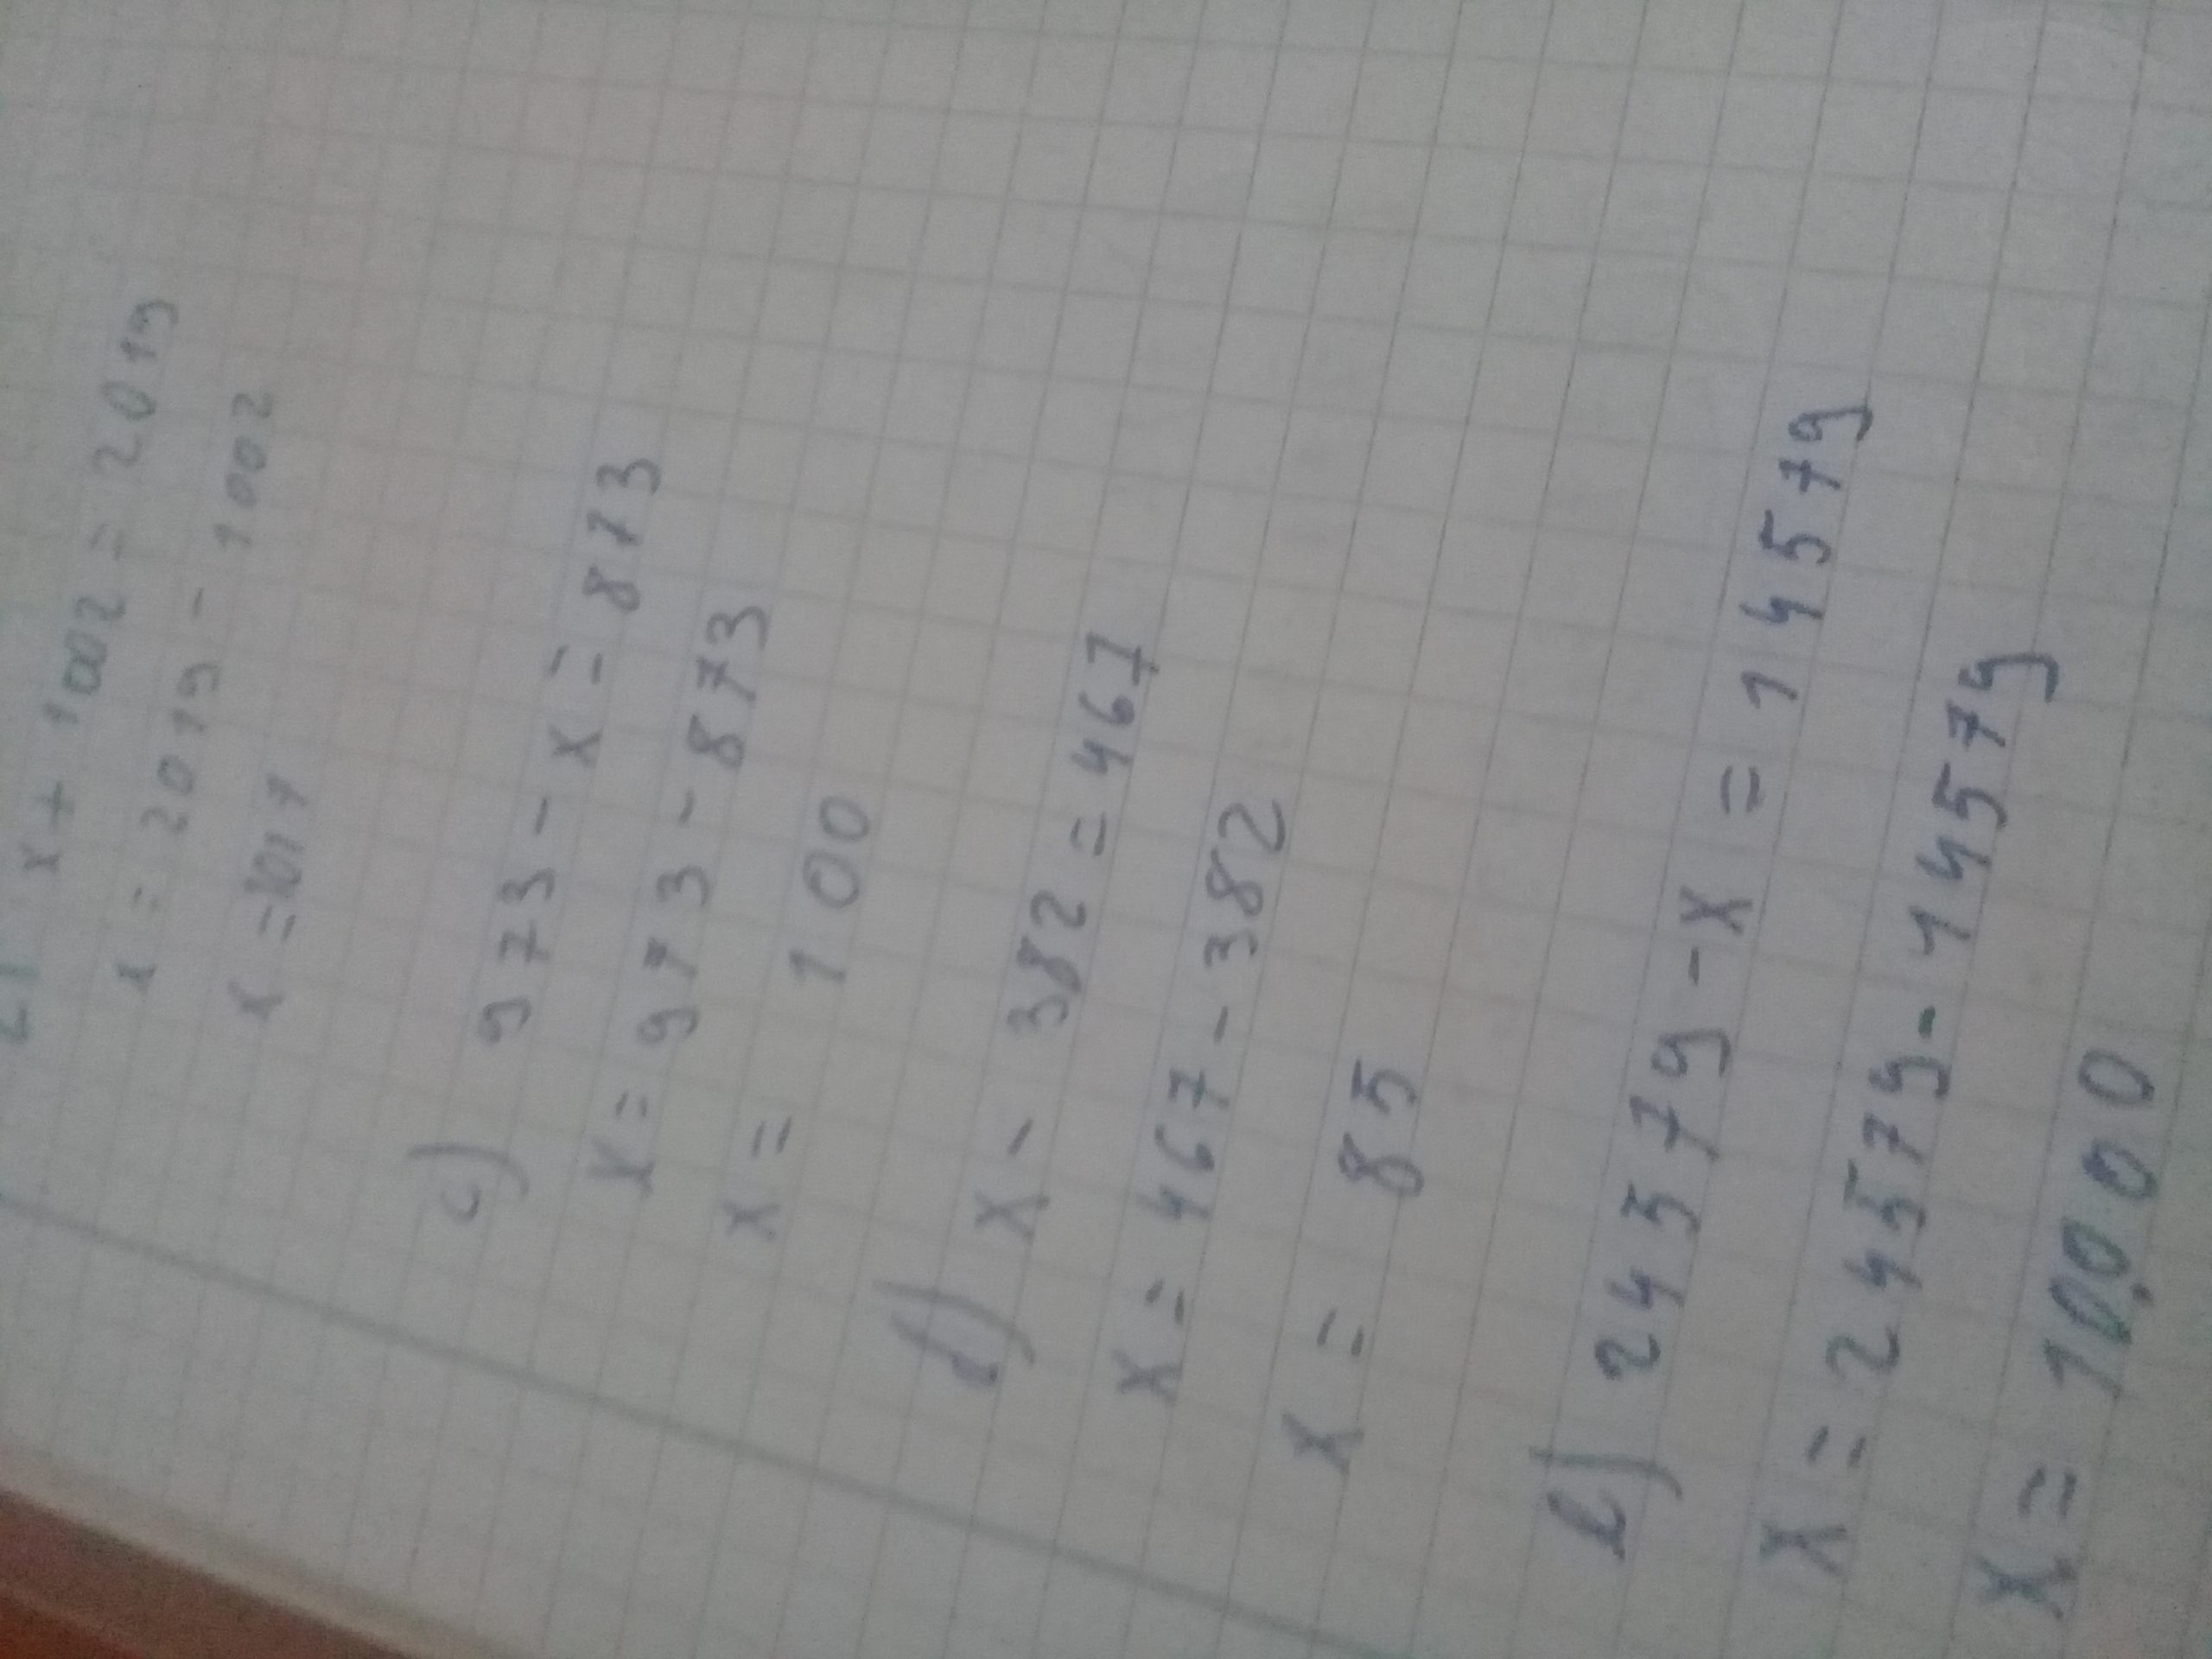 x + 1002 = 2019
x = 2019 - 1002
x = 1017
c) 973 - x = 873
x = 973 - 873
x = 100
d) x - 382 = 467
x = 467 - 382
x = 85
e) 24579 - x = 14579
x = 24579 - 14579
x = 10.000